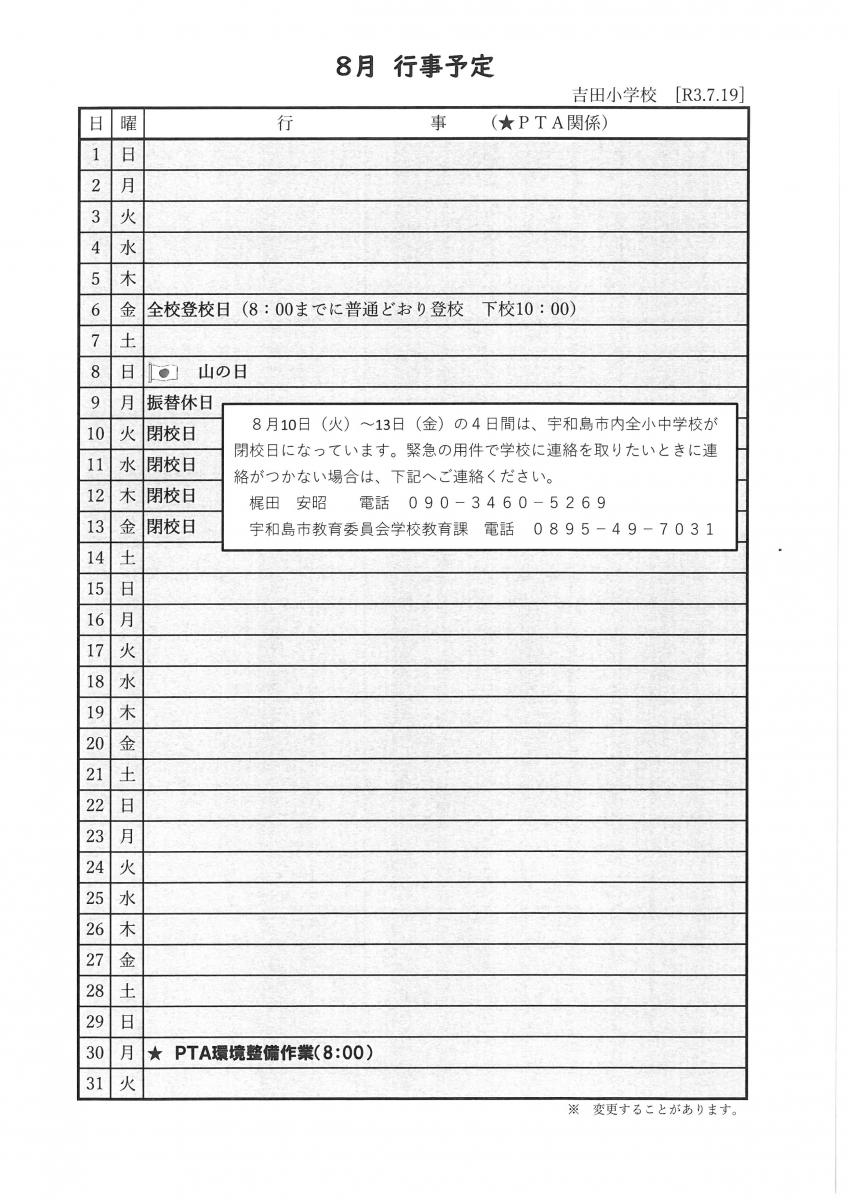 8月 行事予定
吉田小学校 [R3.7.19]
日 曜 行 事 (★PTA関係)
1 日
2 月
3 火
4 水
5 木
6 金 全校登校日（8：00までに普通どおり登校 下校10：00）
7 土
8 日 山の日
9 月 振替休日
10 火 閉校日
11 水 閉校日
12 木 閉校日
13 金 閉校日
８月10日（火）～13日（金）の４日間は、宇和島市内全小中学校が
閉校日になっています。緊急の用件で学校に連絡を取りたいときに連
絡がつかない場合は、下記へご連絡ください。
梶田 安昭 電話 ０９０－３４６０－５２６９
宇和島市教育委員会学校教育課 電話 ０８９５－４９－７０３１
14 土
15 日
16 月
17 火
18 水
19 木
20 金
21 土
22 日
23 月
24 火
25 水
26 木
27 金
28 土
29 日
30 月 ★ PTA環境整備作業(8:00)
31 火
※ 変更することがあります。